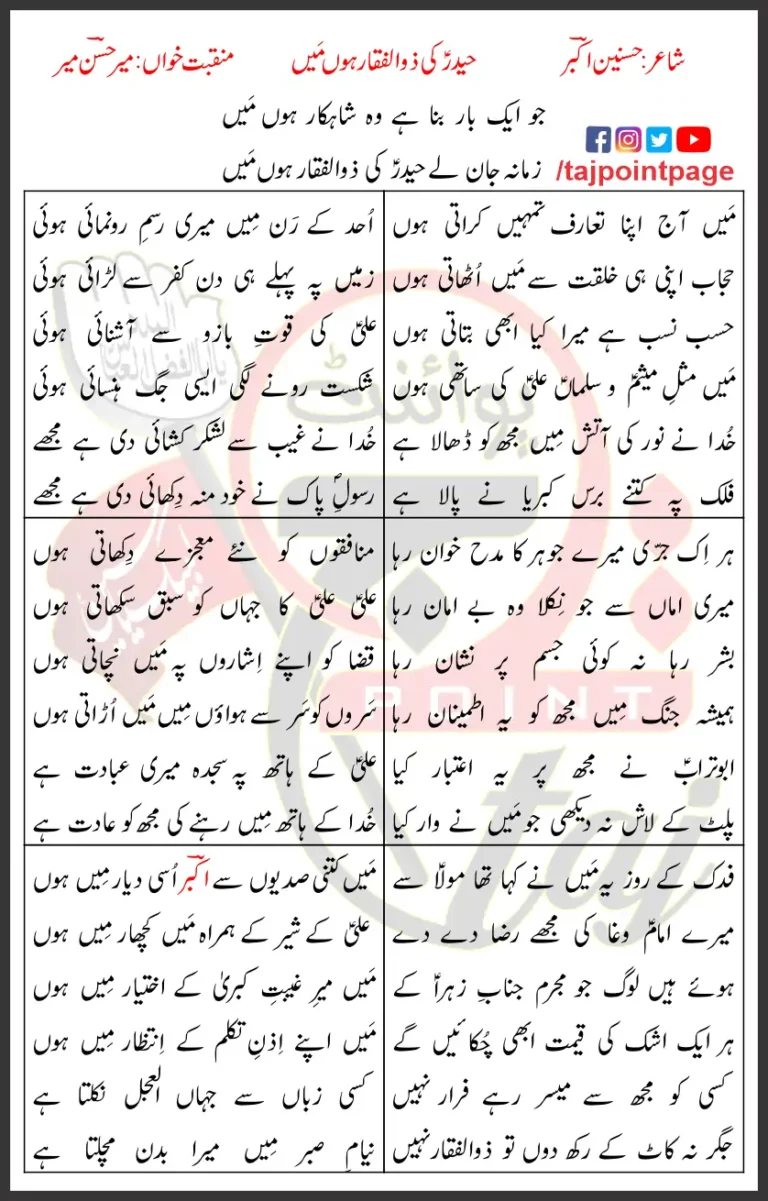 شاعر: حسنین اکبرؔ
حیدرؑ کی ذوالفقار ہوں مَیں
منقبت خواں: میر حسن میرؔ
جو ایک بار بنا ہے وہ شاہکار ہوں مَیں
زمانہ جان لے حیدرؑ کی ذوالفقار ہوں مَیں
/tajpointpage
مَیں آج اپنا تعارف تمہیں کراتی ہوں
حجاب اپنی ہی خلقت سے مَیں اُٹھاتی ہوں
حسب نسب ہے میرا کیا ابھی بتاتی ہوں
مَیں مثلِ میثمؑ و سلماںؑ علیؑ کی ساتھی ہوں
خُدا نے نور کی آتش مِیں مجھ کو ڈھالا ہے
فلک پہ کتنے برس کبریا نے پالا ہے
اُحد کے رَن مِیں میری رسمِ رونمائی ہوئی
زمیں پہ پہلے ہی دن کفر سے لڑائی ہوئی
علیؑ کی قوتِ بازو سے آشنائی ہوئی
شکست رونے لگی ایسی جگ ہنسائی ہوئی
خُدا نے غیب سے لشکر کشائی دی ہے مجھے
رسولِؐ پاک نے خود منہ دِکھائی دی ہے مجھے
ہر اِک جرّی میرے جوہر کا مدح خوان رہا
میری اماں سے جو نِکلا وہ بے امان رہا
بشر رہا نہ کوئی جسم پر نشان رہا
ہمیشہ جنگ مِیں مجھ کو یہ اطمینان رہا
ابوترابؑ نے مجھ پر یہ اعتبار کیا
پلٹ کے لاش نہ دیکھی جو مَیں نے وار کیا
منافقوں کو نئے معجزے دِکھاتی ہوں
علیؑ علیؑ کا جہاں کو سبق سکھاتی ہوں
قضا کو اپنے اِشاروں پہ مَیں نچاتی ہوں
سَروں کو سَر سے ہواؤں مِیں مَیں اُڑاتی ہوں
علیؑ کے ہاتھ پہ سجدہ میری عبادت ہے
خُدا کے ہاتھ مِیں رہنے کی مجھ کو عادت ہے
فدک کے روز یہ مَیں نے کہا تھا مولاؑ سے
میرے امامؑ وغا کی مجھے رضا دے دے
ہوئے ہیں لوگ جو مجرم جنابِ زہراؑ کے
ہر ایک اشک کی قیمت ابھی چُکائیں گے
کسی کو مجھ سے میسر رہے فرار نہیں
جگر نہ کاٹ کے رکھ دوں تو ذوالفقار نہیں
مَیں کتنی صدیوں سے اکبرؔ اُسی دیار مِیں ہوں
علیؑ کے شیر کے ہمراہ مَیں کچھار مِیں ہوں
مَیں میرِ غیبتِ کبریٰ کے اختیار مِیں ہوں
مَیں اپنے اِذنِ تکلم کے اِنتظار مِیں ہوں
کسی زباں سے جہاں العجل نکلتا ہے
نیامِ صبر مِیں میرا بدن مچلتا ہے
پوائنٹ
POINT
taj